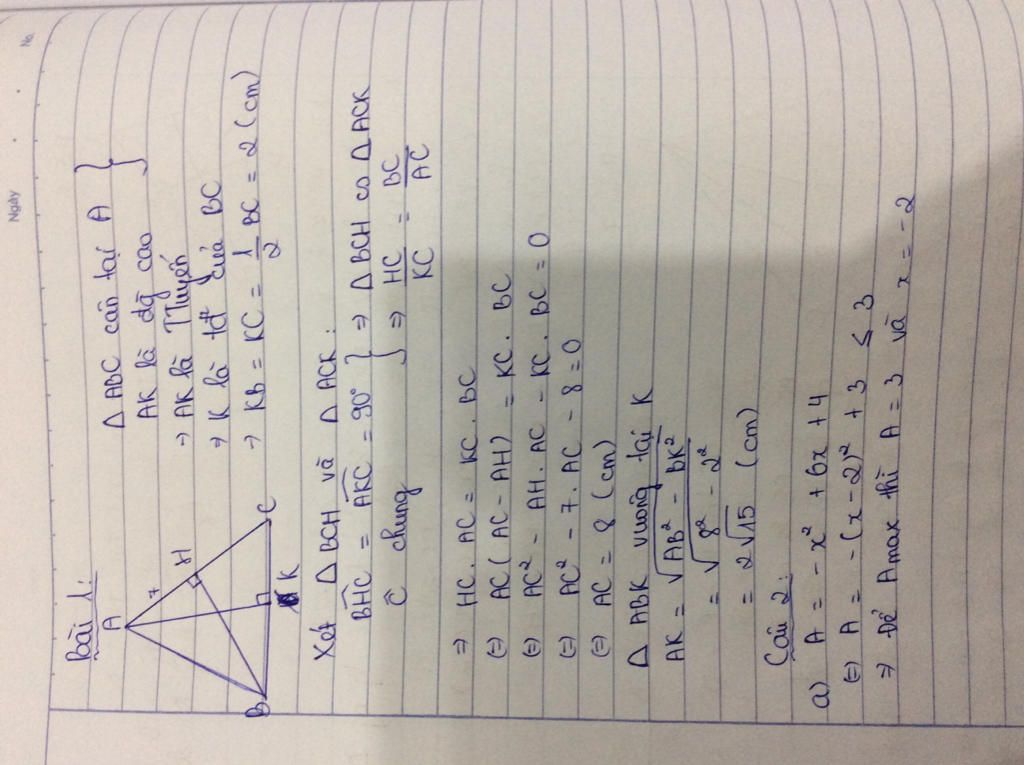 Ngày
No.
Bài 1:
A
7
H
B
K
C
Δ ABC cân tại A
AK là đg cao
→ AK là TTuyến
→ K là tđ của BC
→ KB = KC = 1/2 BC = 2 (cm)
Xét Δ BCH và Δ ACK:
BHC = AKC = 90° } ⇒ Δ BCH ∽ Δ ACK
Ĉ chung ⇒ HC/KC = BC/AC
⇒ HC . AC = KC . BC
(=) AC ( AC - AH ) = KC . BC
(=) AC² - AH . AC - KC . BC = 0
(=) AC² - 7 . AC - 8 = 0
(=) AC = 8 (cm)
Δ ABK vuông tại K
AK = √AB² - BK²
= √8² - 2²
= 2√15 (cm)
Câu 2:
a) A = - x² + 6x + 4
(=) A = - (x - 2)² + 3 ≤ 3
⇒ Để Amax thì A = 3 và x = - 2